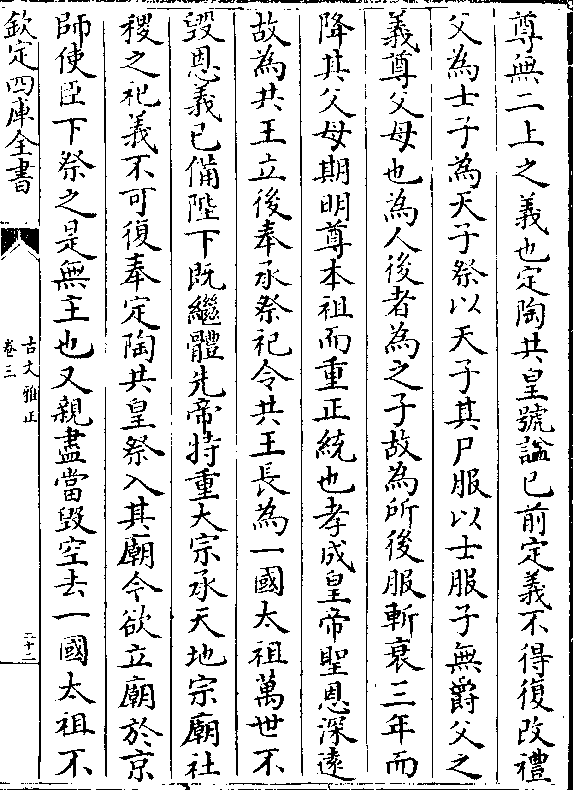 尊無二上之義也定陶共皇號諡已前定義不得復改禮
父為士子為天子祭以天子其尸服以士服子無爵父之
義尊父母也為人後者為之子故為所後服斬衰三年而
降其父母期明尊本祖而重正統也孝成皇帝聖恩深遠
故為共王立後奉承祭祀令共王長為一國太祖萬世不
毀恩義已備陛下既繼體先帝持重大宗承天地宗廟社
稷之祀義不可復奉定陶共皇祭入其廟今欲立廟於京
師使臣下祭之是無主也又親盡當毀空去一國太祖不
欽定四庫全書
古文雅正
卷三
二十二